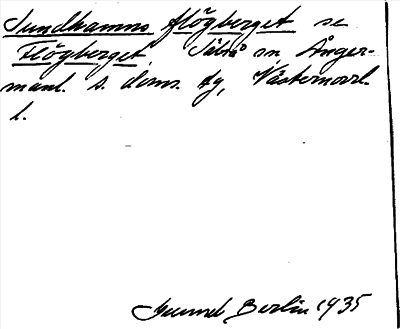 Sundhamns flögberget se
Flögberget, Säbrå sn, Ånger-
manl. s. doms. dg, Västernorrl.
l.
Gunnel Berlin 1935